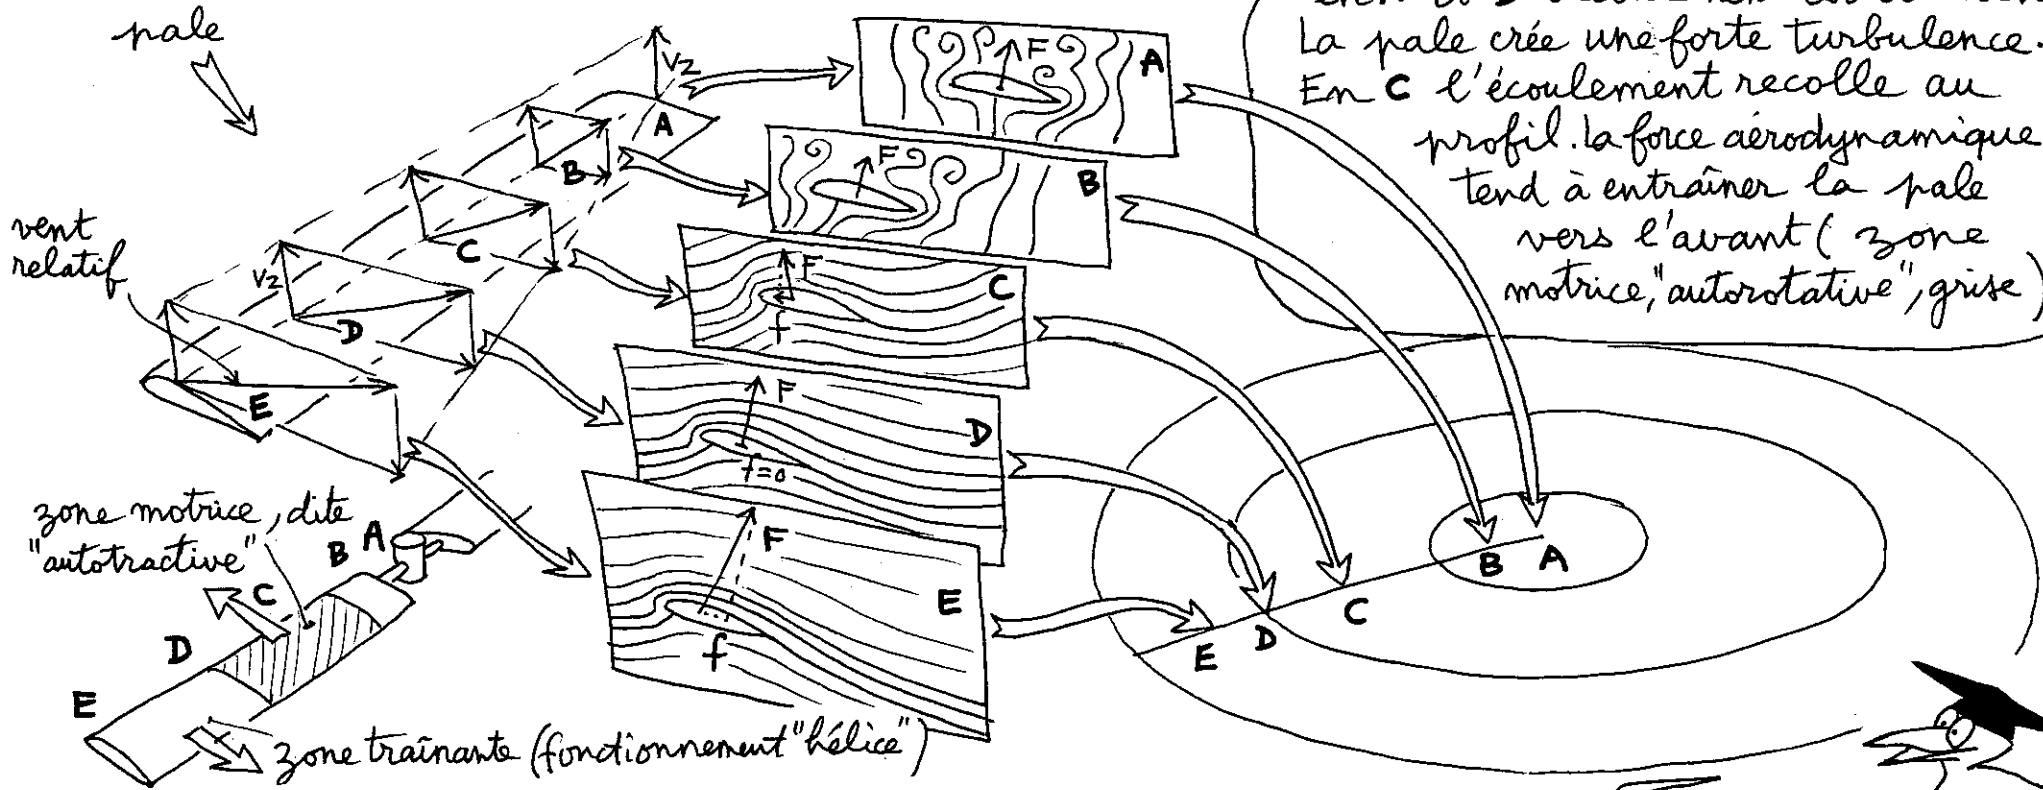 pale
La pale crée une forte turbulence.
En C l'écoulement recolle au
profil. la force aérodynamique
tend à entraîner la pale
vers l'avant ( zone
motrice, "autorotative", grise )
V2
A
B
C
V2
D
E
vent
relatif
F
A
F
B
F
C
f
F
D
f=0
F
E
f
B
A
C
D
E
zone motrice, dite
"autotractive"
A
B
C
D
E
zone traînante (fonctionnement "hélice")